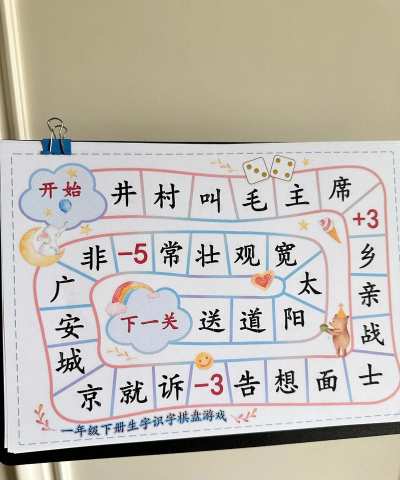 开始 井 村 叫 毛 主 席
+3
乡
亲
战
士
面 想 告 -3 诉 就 京
城
安
广
非 -5 常 壮 观 宽
太
阳 道 送 下一关
一年级下册生字识字棋盘游戏